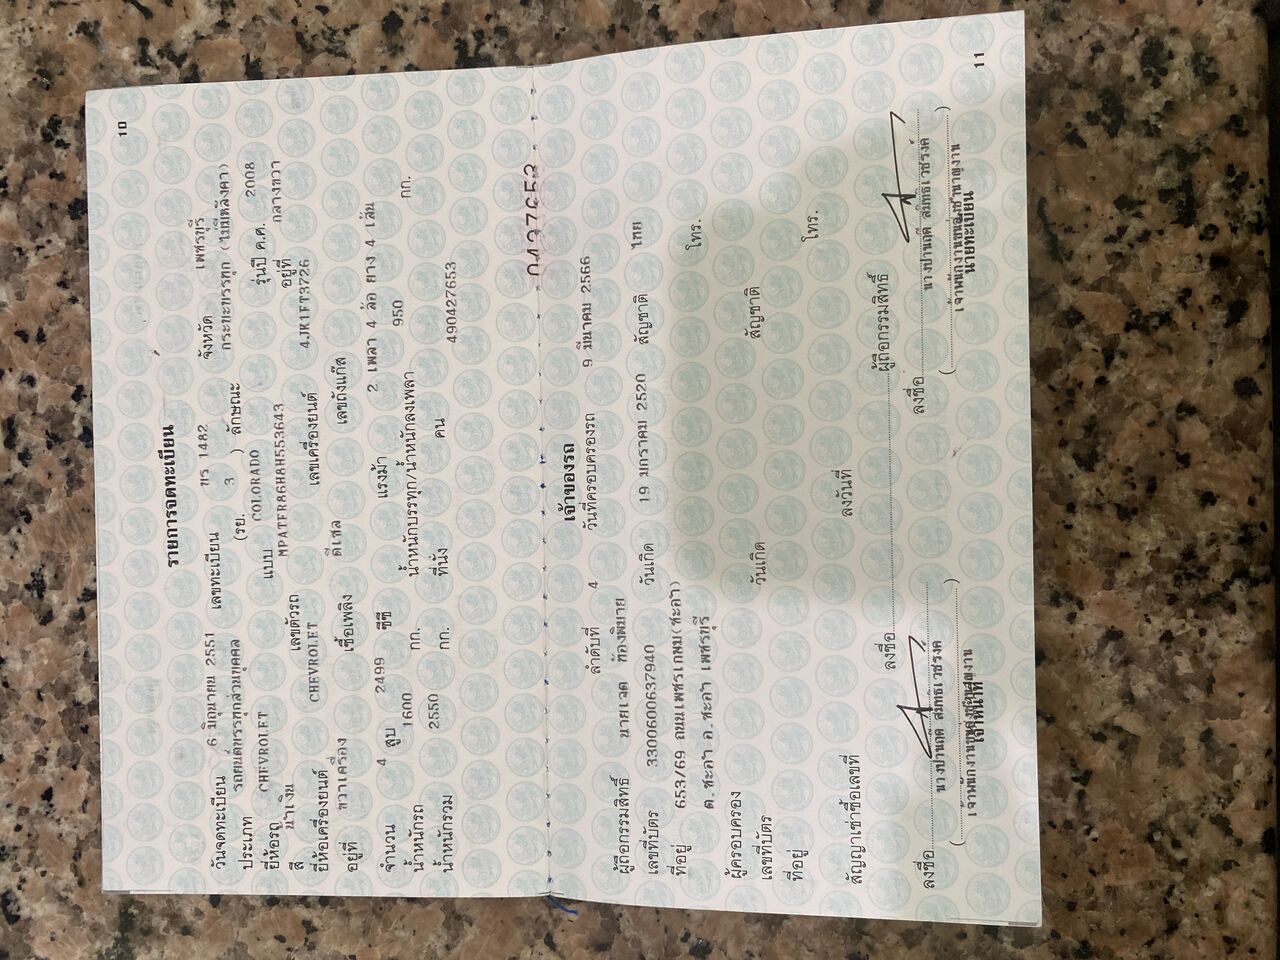 10
รายการจดทะเบียน
วันจดทะเบียน 6 มิถุนายน 2551 เลขทะเบียน บร 1482 จังหวัด เพชรบุรี
ประเภท รถยนต์บรรทุกส่วนบุคคล (รย. 3 ) ลักษณะ กระบะบรรทุก (ไม่มีหลังคา)
ยี่ห้อรถ CHEVROLET แบบ COLORADO รุ่นปี ค.ศ. 2008
สี น้ำเงิน เลขตัวรถ MPATFR86H8H553643 อยู่ที่ กลางขวา
ยี่ห้อเครื่องยนต์ CHEVROLET เลขเครื่องยนต์ 4JK1FT3726
อยู่ที่ ขวาเครื่อง เชื้อเพลิง ดีเซล เลขถังแก๊ส
จำนวน 4 สูบ 2499 ซีซี แรงม้า 2 เพลา 4 ล้อ ยาง 4 เส้น
น้ำหนักรถ 1600 กก. น้ำหนักบรรทุก/น้ำหนักลงเพลา 950 กก.
น้ำหนักรวม 2550 กก. ที่นั่ง คน 490427653
เจ้าของรถ
ลำดับที่ 4 วันที่ครอบครองรถ 9 มีนาคม 2566
ผู้ถือกรรมสิทธิ์ นายเวด ท้องพิมาย
เลขที่บัตร 3300600637940 วันเกิด 19 มกราคม 2520 สัญชาติ ไทย
ที่อยู่ 653/69 ถนนเพชรเกษม(ชะอำ)
ต.ชะอำ อ.ชะอำ เพชรบุรี โทร.
ผู้ครอบครอง
เลขที่บัตร วันเกิด สัญชาติ
ที่อยู่
โทร.
สัญญาเช่าซื้อเลขที่ ลงวันที่
ลงชื่อ ผู้ถือกรรมสิทธิ์
ลงชื่อ ลงชื่อ
เจ้าหน้าที่ นายทะเบียน
11